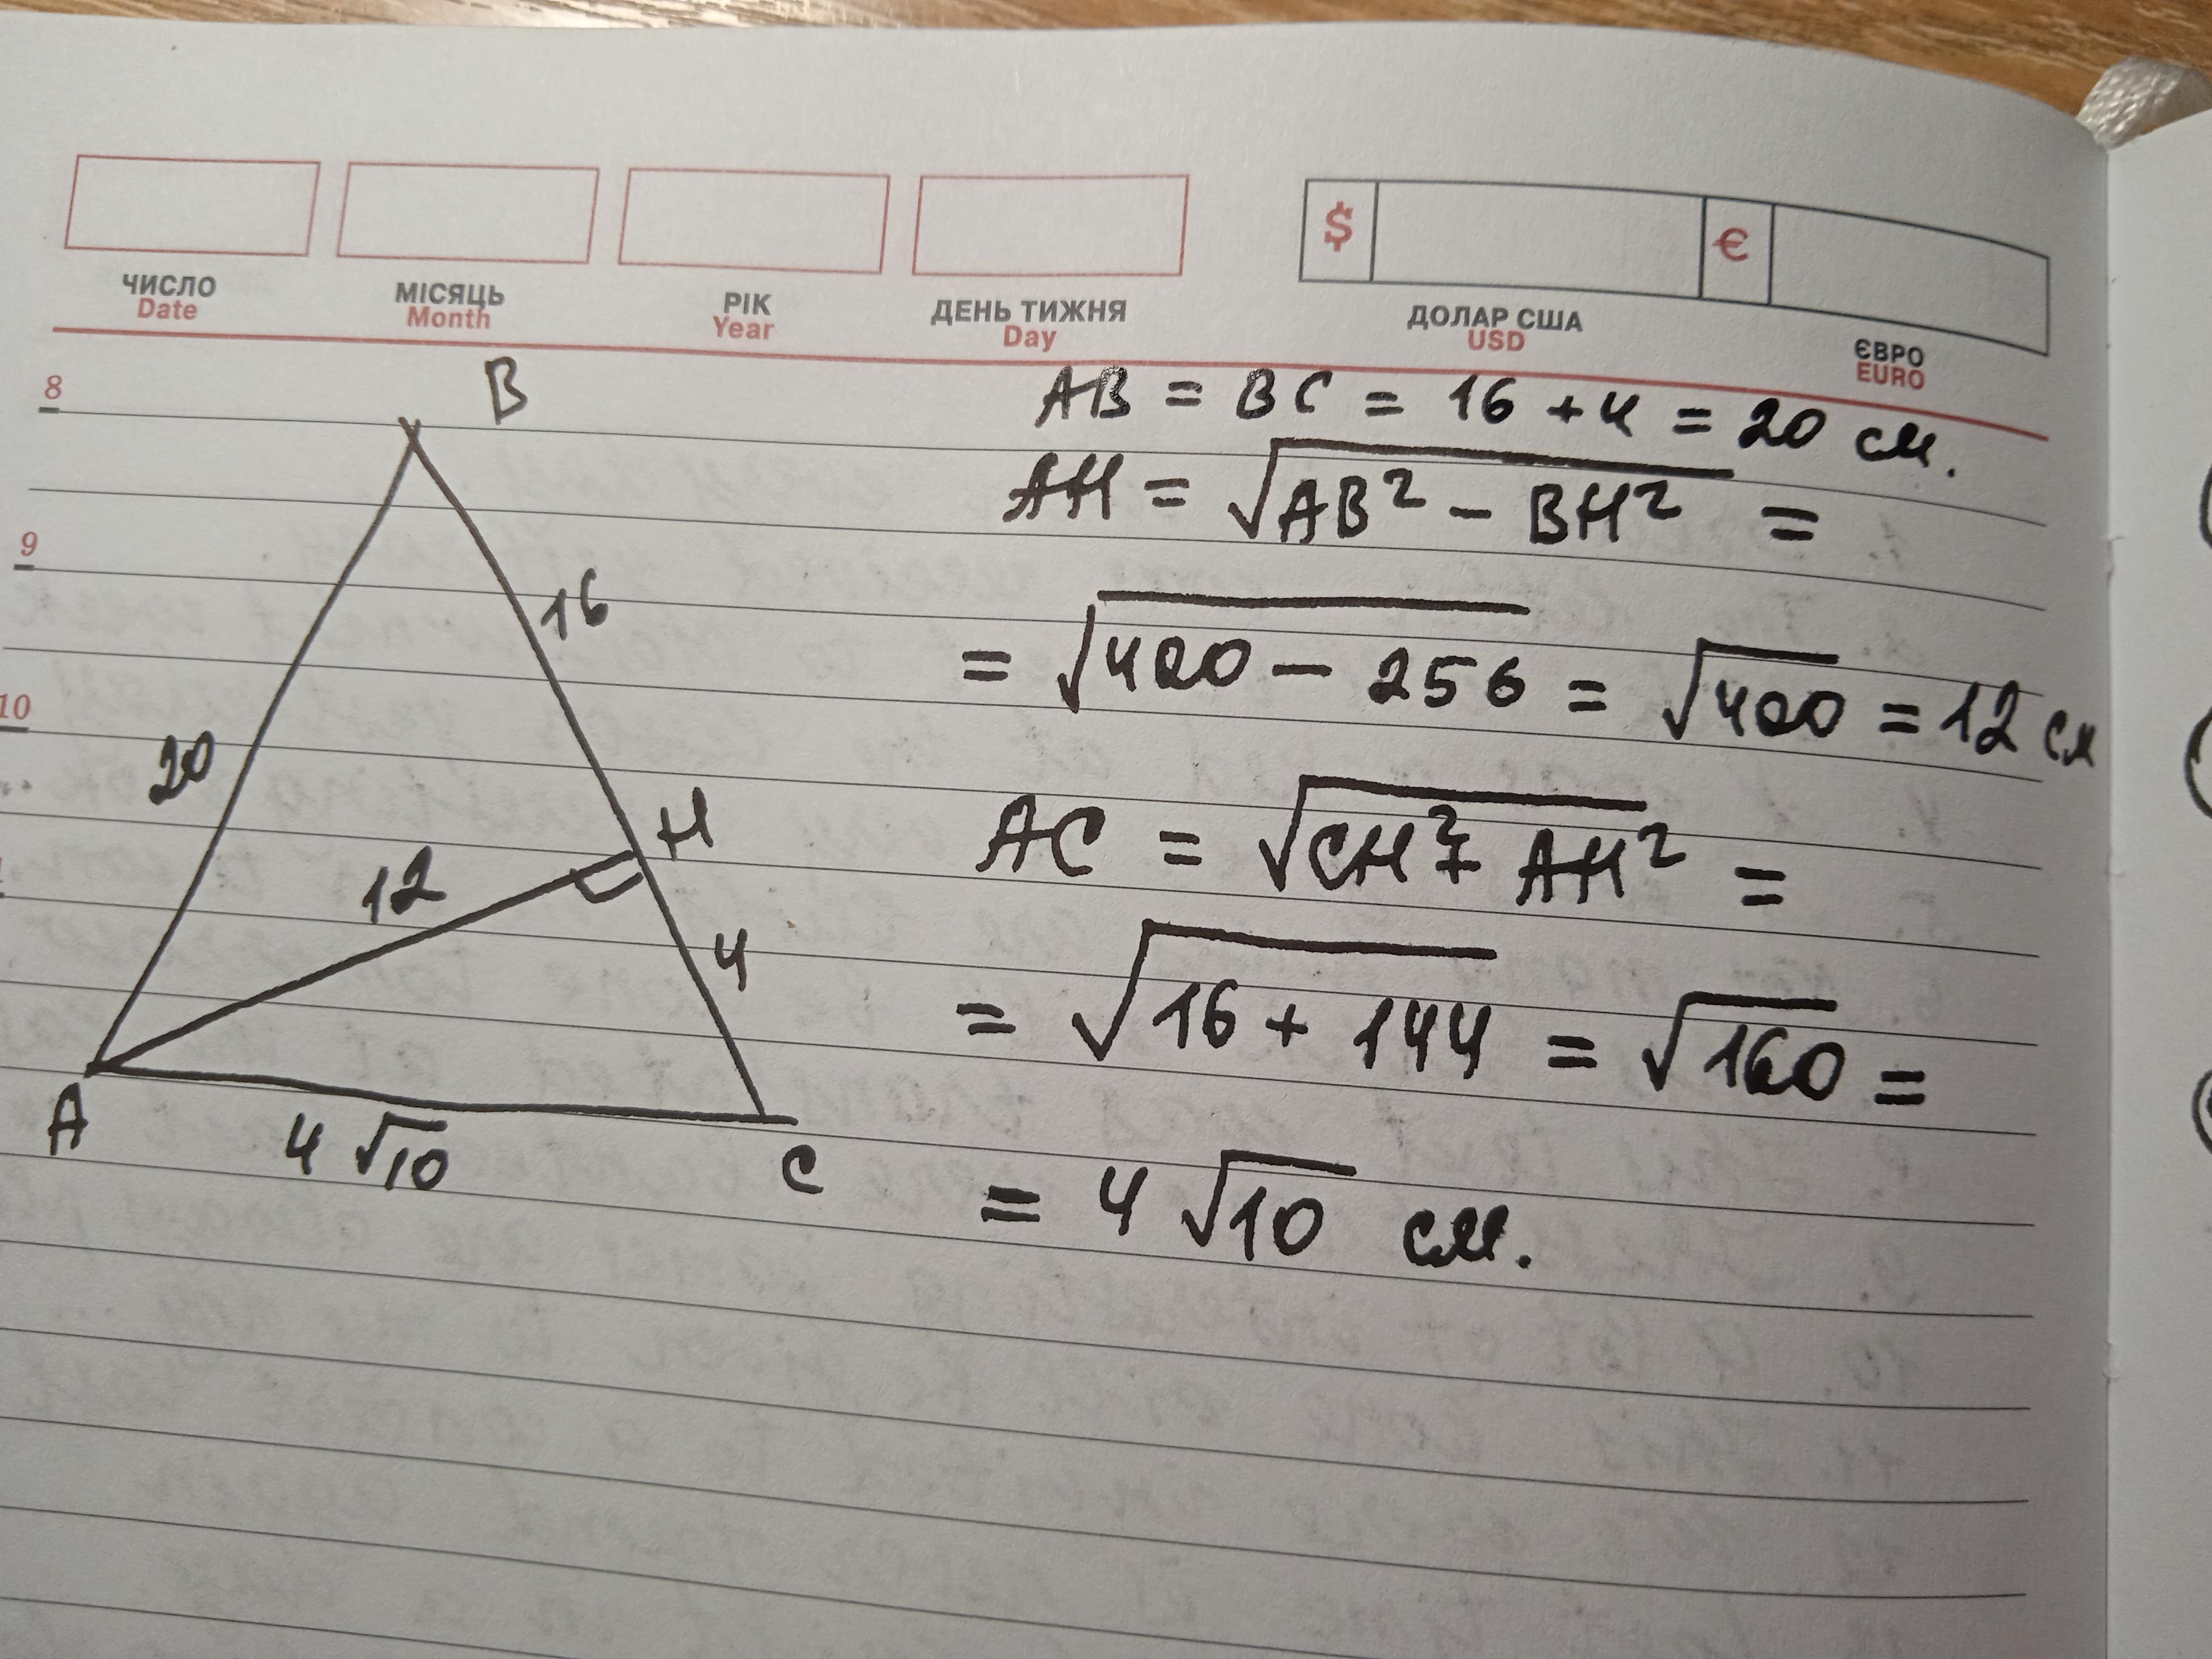 $
€
ЧИСЛО
Date
МІСЯЦЬ
Month
РІК
Year
ДЕНЬ ТИЖНЯ
Day
ДОЛАР США
USD
ЄВРО
EURO
8
9
10
B
16
20
H
12
4
A
4 √10
C
AB = BC = 16 + 4 = 20 см.
AH = √AB² - BH² =
= √400 - 256 = √400 = 12 см
AC = √CH² + AH² =
= √16 + 144 = √160 =
= 4 √10 см.